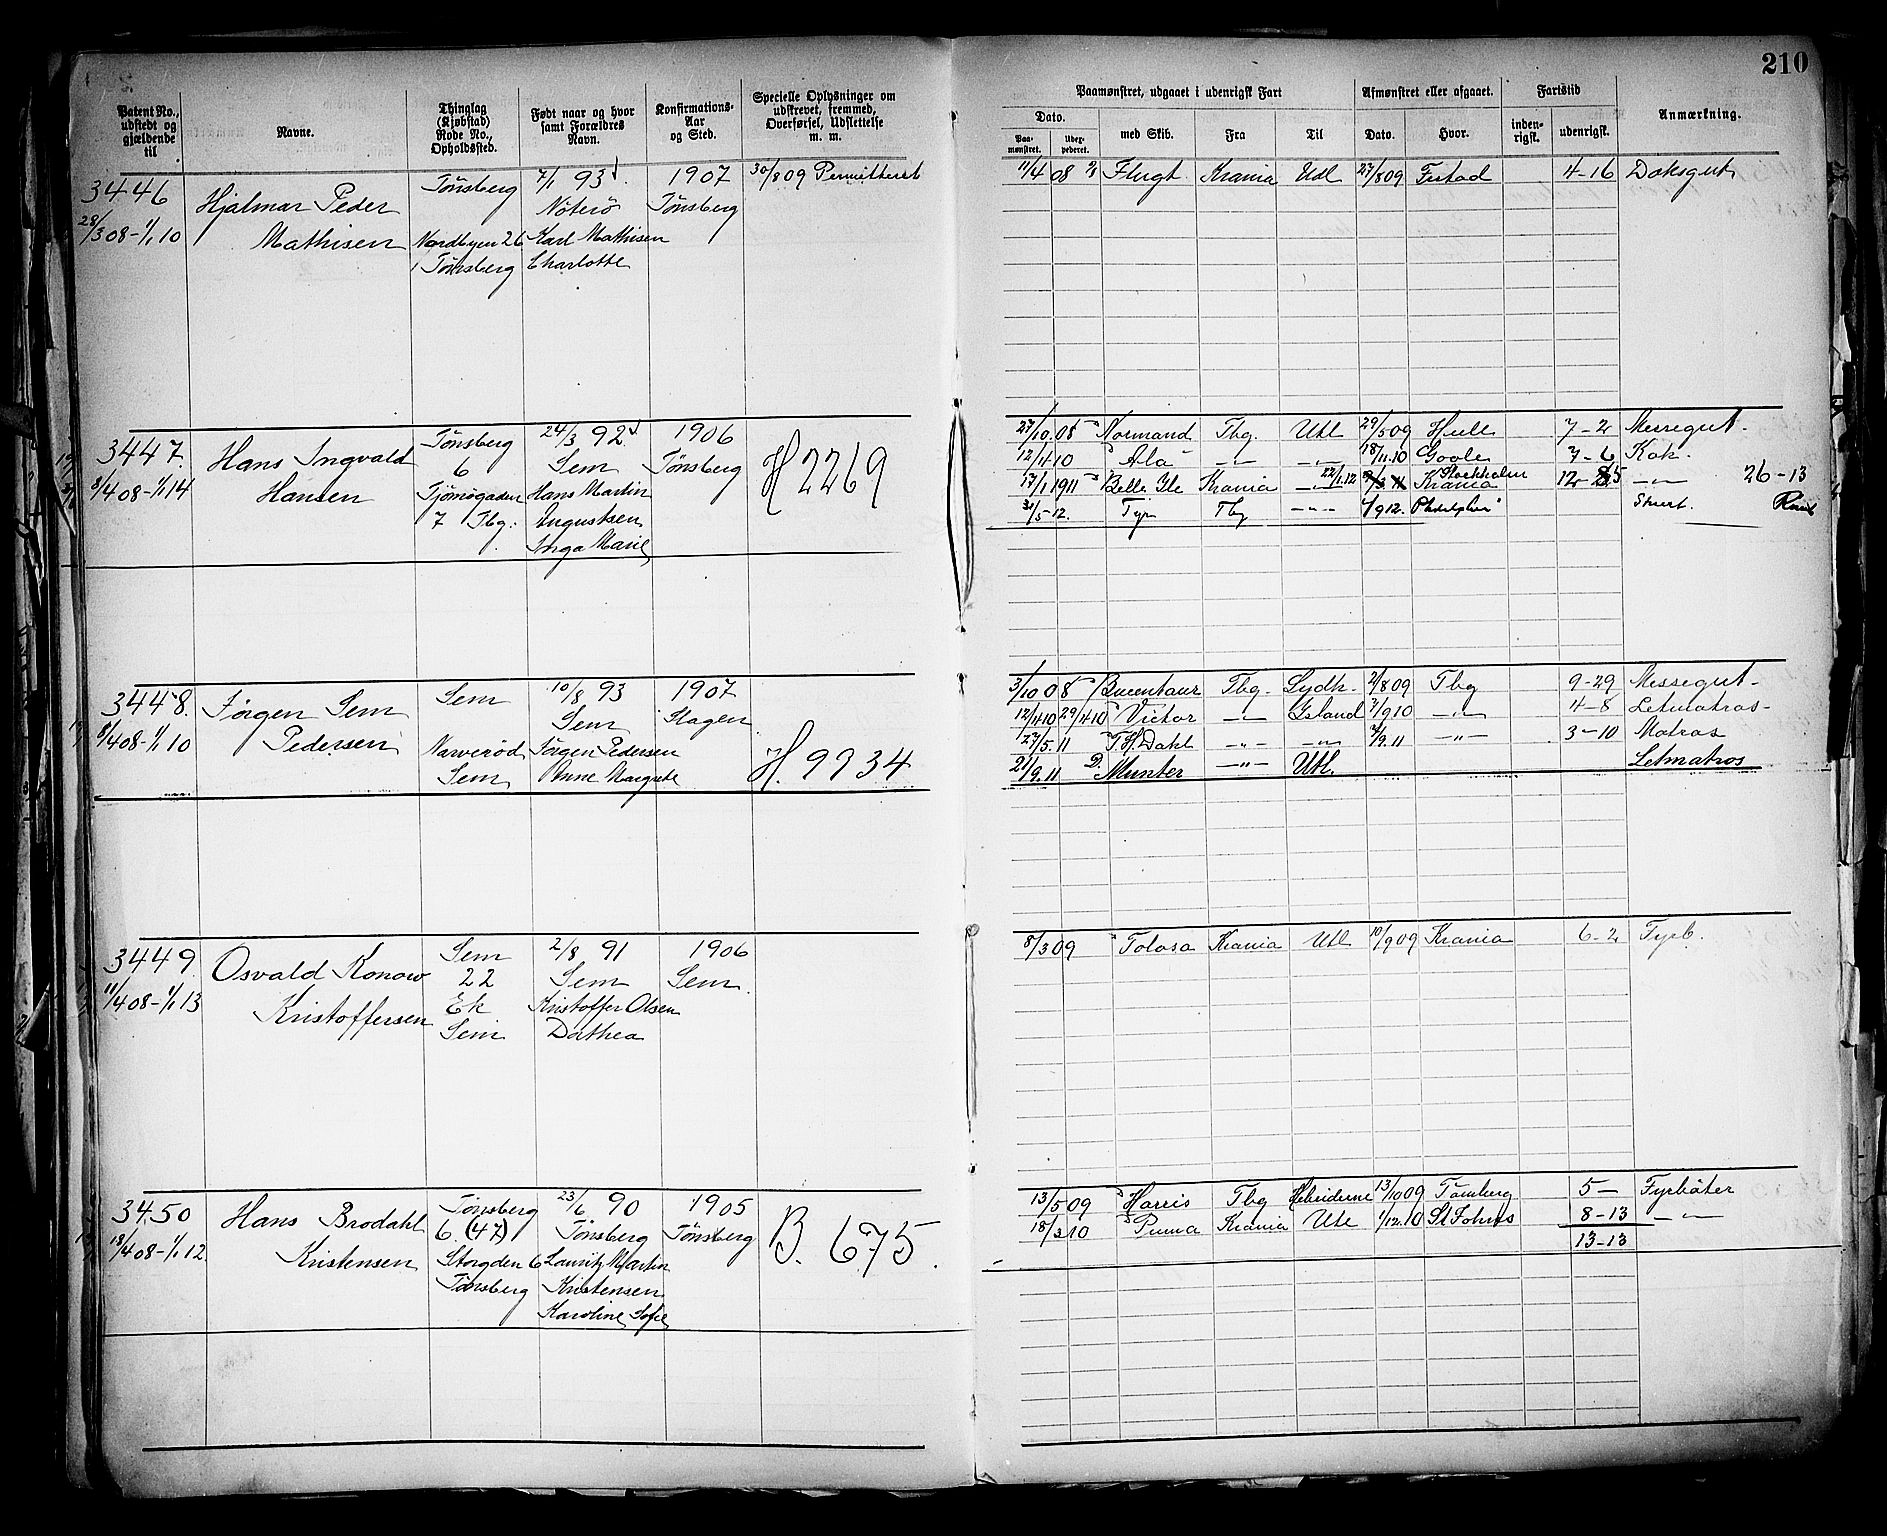 210
Patent No., udstedt og gjældende til
Navne.
Thinglag (Kjøbstad) Rode No., Opholdssted.
Født naar og hvor samt Forældres Navn.
Konfirmations-Aar og Sted.
Specielle Oplysninger om udskrevet, fremmed, Overførsel, Udslettelse m. m.
Paamønstret, udgaaet i udenrigsk Fart
Dato.
Paa-mønstret.
med Skib.
Fra
Til
Afmønstret eller afgaaet.
Dato.
Hvor.
Fartstid
inden-rigsk.
udenrigsk.
Anmærkning.
3446 Tønsberg 7/1 93 1907 30/8 09 Permitteret
28/3 08-1/1 10 Hjalmar Peder Nøterø Tønsberg
Mathisen Nordbyen 26 Karl Mathisen
Tønsberg Charlotte
11/4 08 Flugt Krania Udl 27/8 09 4-16 Daksgut
3447. Hans Ingvald Tønsberg 24/3 92 1906 H 2269
8/4 08-1/1 14 Hansen 6 Sem Tønsberg
Tjømøgaden Hans Martin
7 Tbg. Augustsen
Inga Marie
27/10 08 Normand Tbg. Utl 29/5 09 Hull 7-2 Messegut.
12/4 10 Ala -"- -"- 18/11 10 Goole 7-6 Kok.
17/1 1911 Belle Ile Krania -"- 22/1 12 Krania Stockholm 12- -"- 26-13
31/5 12. Tyr Tbg -"- 4/9 12. Stuert.
3448. Jørgen Sem Sem 10/8 93 1907
8/4 08-1/1 10 Pedersen Sem Slagen
Narverød Jørgen Pedersen
Sem Anne Margrete H. 9934
3/10 08 Bucentaur Tbg. Sydh. 2/8 09 Tbg 9-29 Messegut
12/4 10 29/4 10 Victor -"- Island 7/9 10 -"- 4-8 Letmatros
27/5 11 T. H. Dahl -"- -"- 2/9 11 -"- 3-10 Matros
21/9 11 D. Munter -"- Utl. Letmatros
3449. Osvald Konow Sem 2/8 91 1906
11/4 08-1/1 13 Kristoffersen 22 Sem Sem
Ek Kristoffer Olsen
Sem Dorthea
8/3 09 Tolosa Krania Utl 10/9 09 Krania 6-2 Fyrb.
3450 Hans Brodahl Tønsberg 23/6 90 1905 B. 675.
18/4 08-1/1 12 Kristensen 6 (47) Tønsberg Tønsberg
Storgden 6 Lauritz Martin
Tønsberg Kristensen
Karoline Sofie
13/5 09 Harris Tbg Hebriderne 13/10 09 Tønsberg 5- Fyrbøter
18/3 10 Puma Krania Utl 1/12 10 St Johns 8-13 -"-
13-13